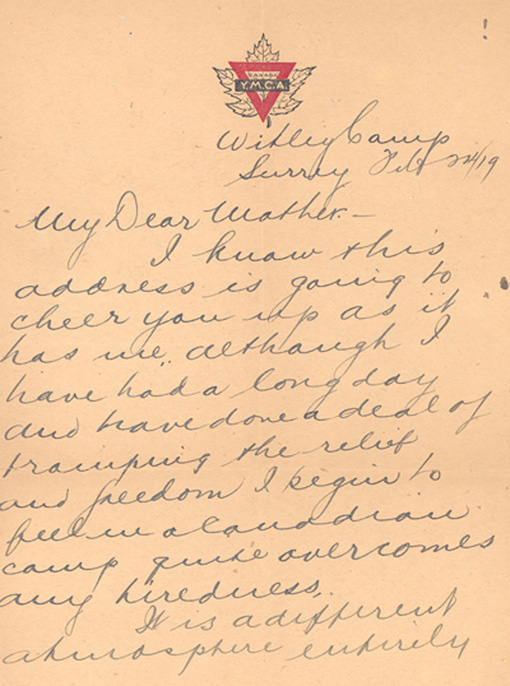 CANADA
Y.M.C.A
Witley Camp
Surrey Feb 24/19
My Dear Mother.—
I know this
address is going to
cheer you up as it
has me, although I
have had a long day
and have done a deal of
tramping the relief
and freedom I begin to
feel in a Canadian
camp quite overcomes
any tiredness.
It is a different
atmosphere entirely